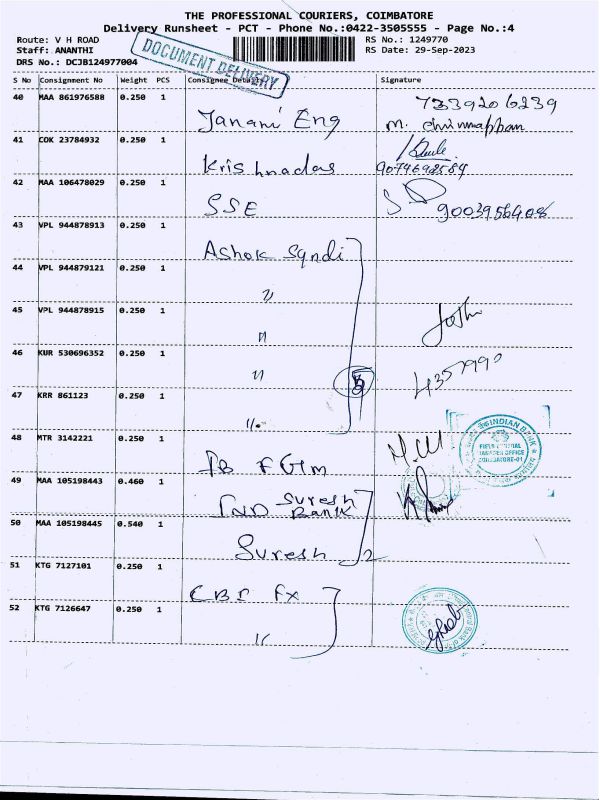 THE PROFESSIONAL COURIERS, COIMBATORE
Delivery Runsheet - PCT - Phone No.:0422-3505555 - Page No.:4
Route: V H ROAD
RS No.: 1249770
Staff: ANANTHI
RS Date: 29-Sep-2023
DRS No.: DCJB124977004
DOCUMENT DELIVERY
S No Consignment No Weight PCS Consignee Details Signature
40 MAA 861976588 0.250 1 Janani Eng 7339206239
41 COK 23784932 0.250 1 Krishnadas
42 MAA 106478029 0.250 1 SSE 9003956408
43 VPL 944878913 0.250 1 Ashok
44 VPL 944879121 0.250 1 "
45 VPL 944878915 0.250 1 "
46 KUR 530696352 0.250 1 " 5
47 KRR 861123 0.250 1 "
48 MTR 3142221 0.250 1 IB FGM
INDIAN BANK
49 MAA 105198443 0.460 1 IND Suresh Bank
50 MAA 105198445 0.540 1 Suresh 2
51 KTG 7127101 0.250 1 CBI Fx
52 KTG 7126647 0.250 1 "